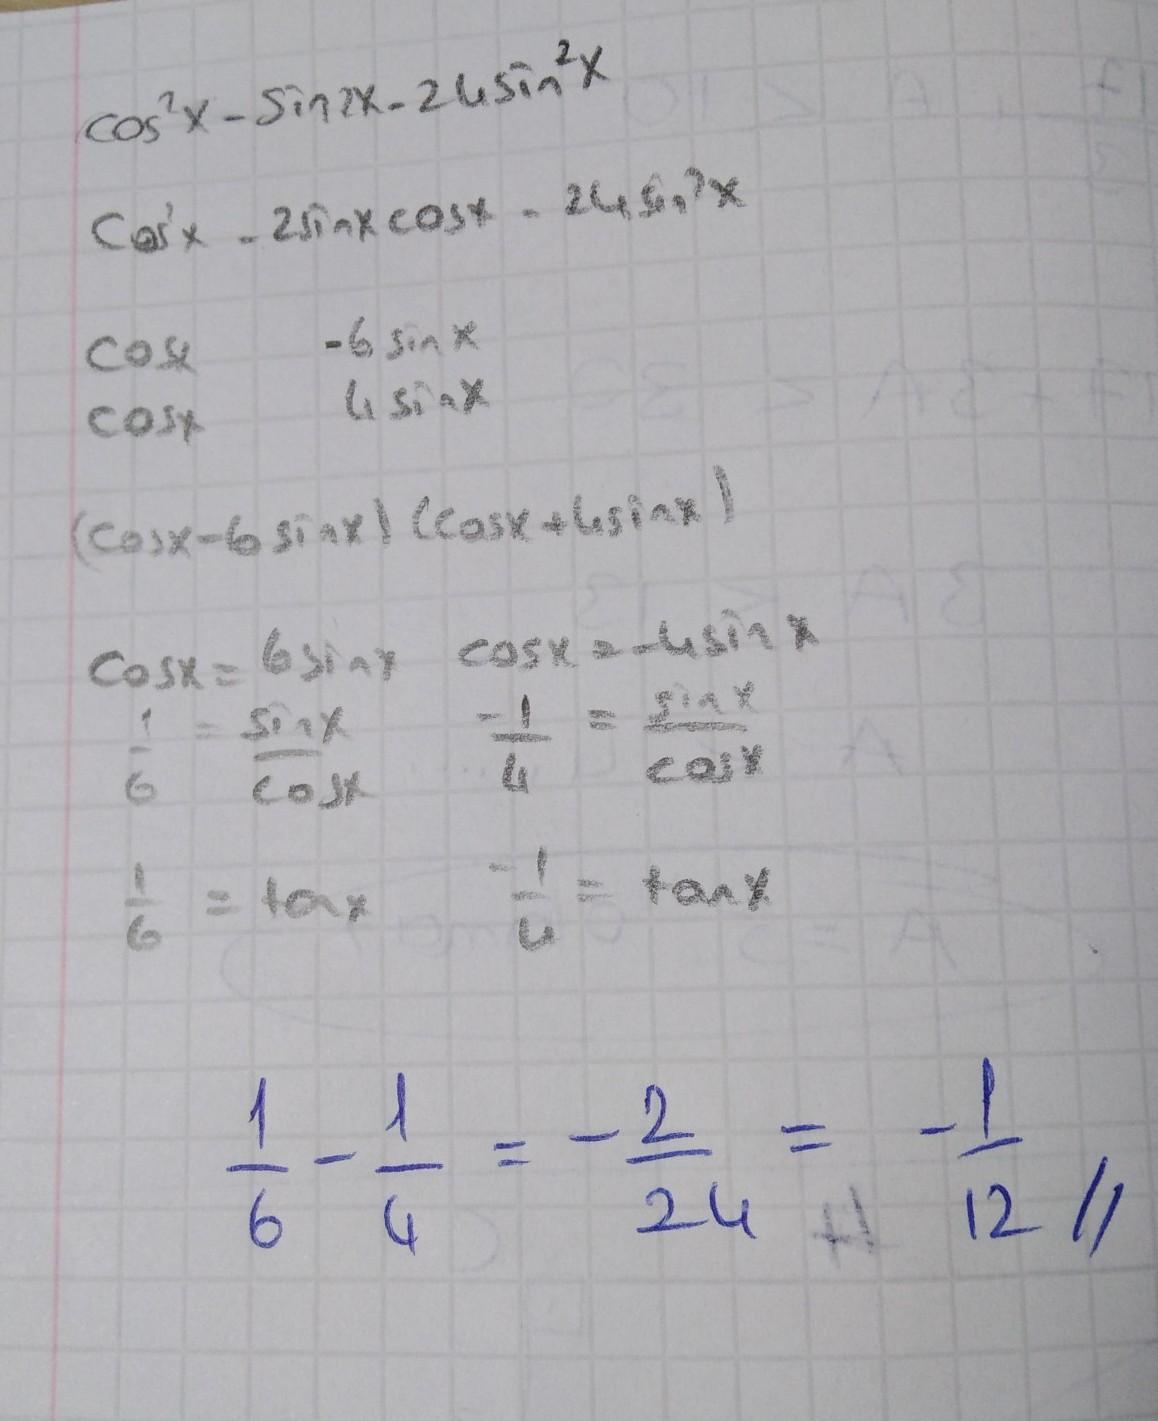 cos²x - sin2x - 24sin²x
cos²x - 2sinxcosx - 24sin²x
cosx -6sinx
cosx 4sinx
(cosx-6sinx) (cosx+4sinx)
cosx = 6sinx cosx = -4sinx
1/6 = sinx/cosx -1/4 = sinx/cosx
1/6 = tanx -1/4 = tanx
1/6 - 1/4 = -2/24 = -1/12 //